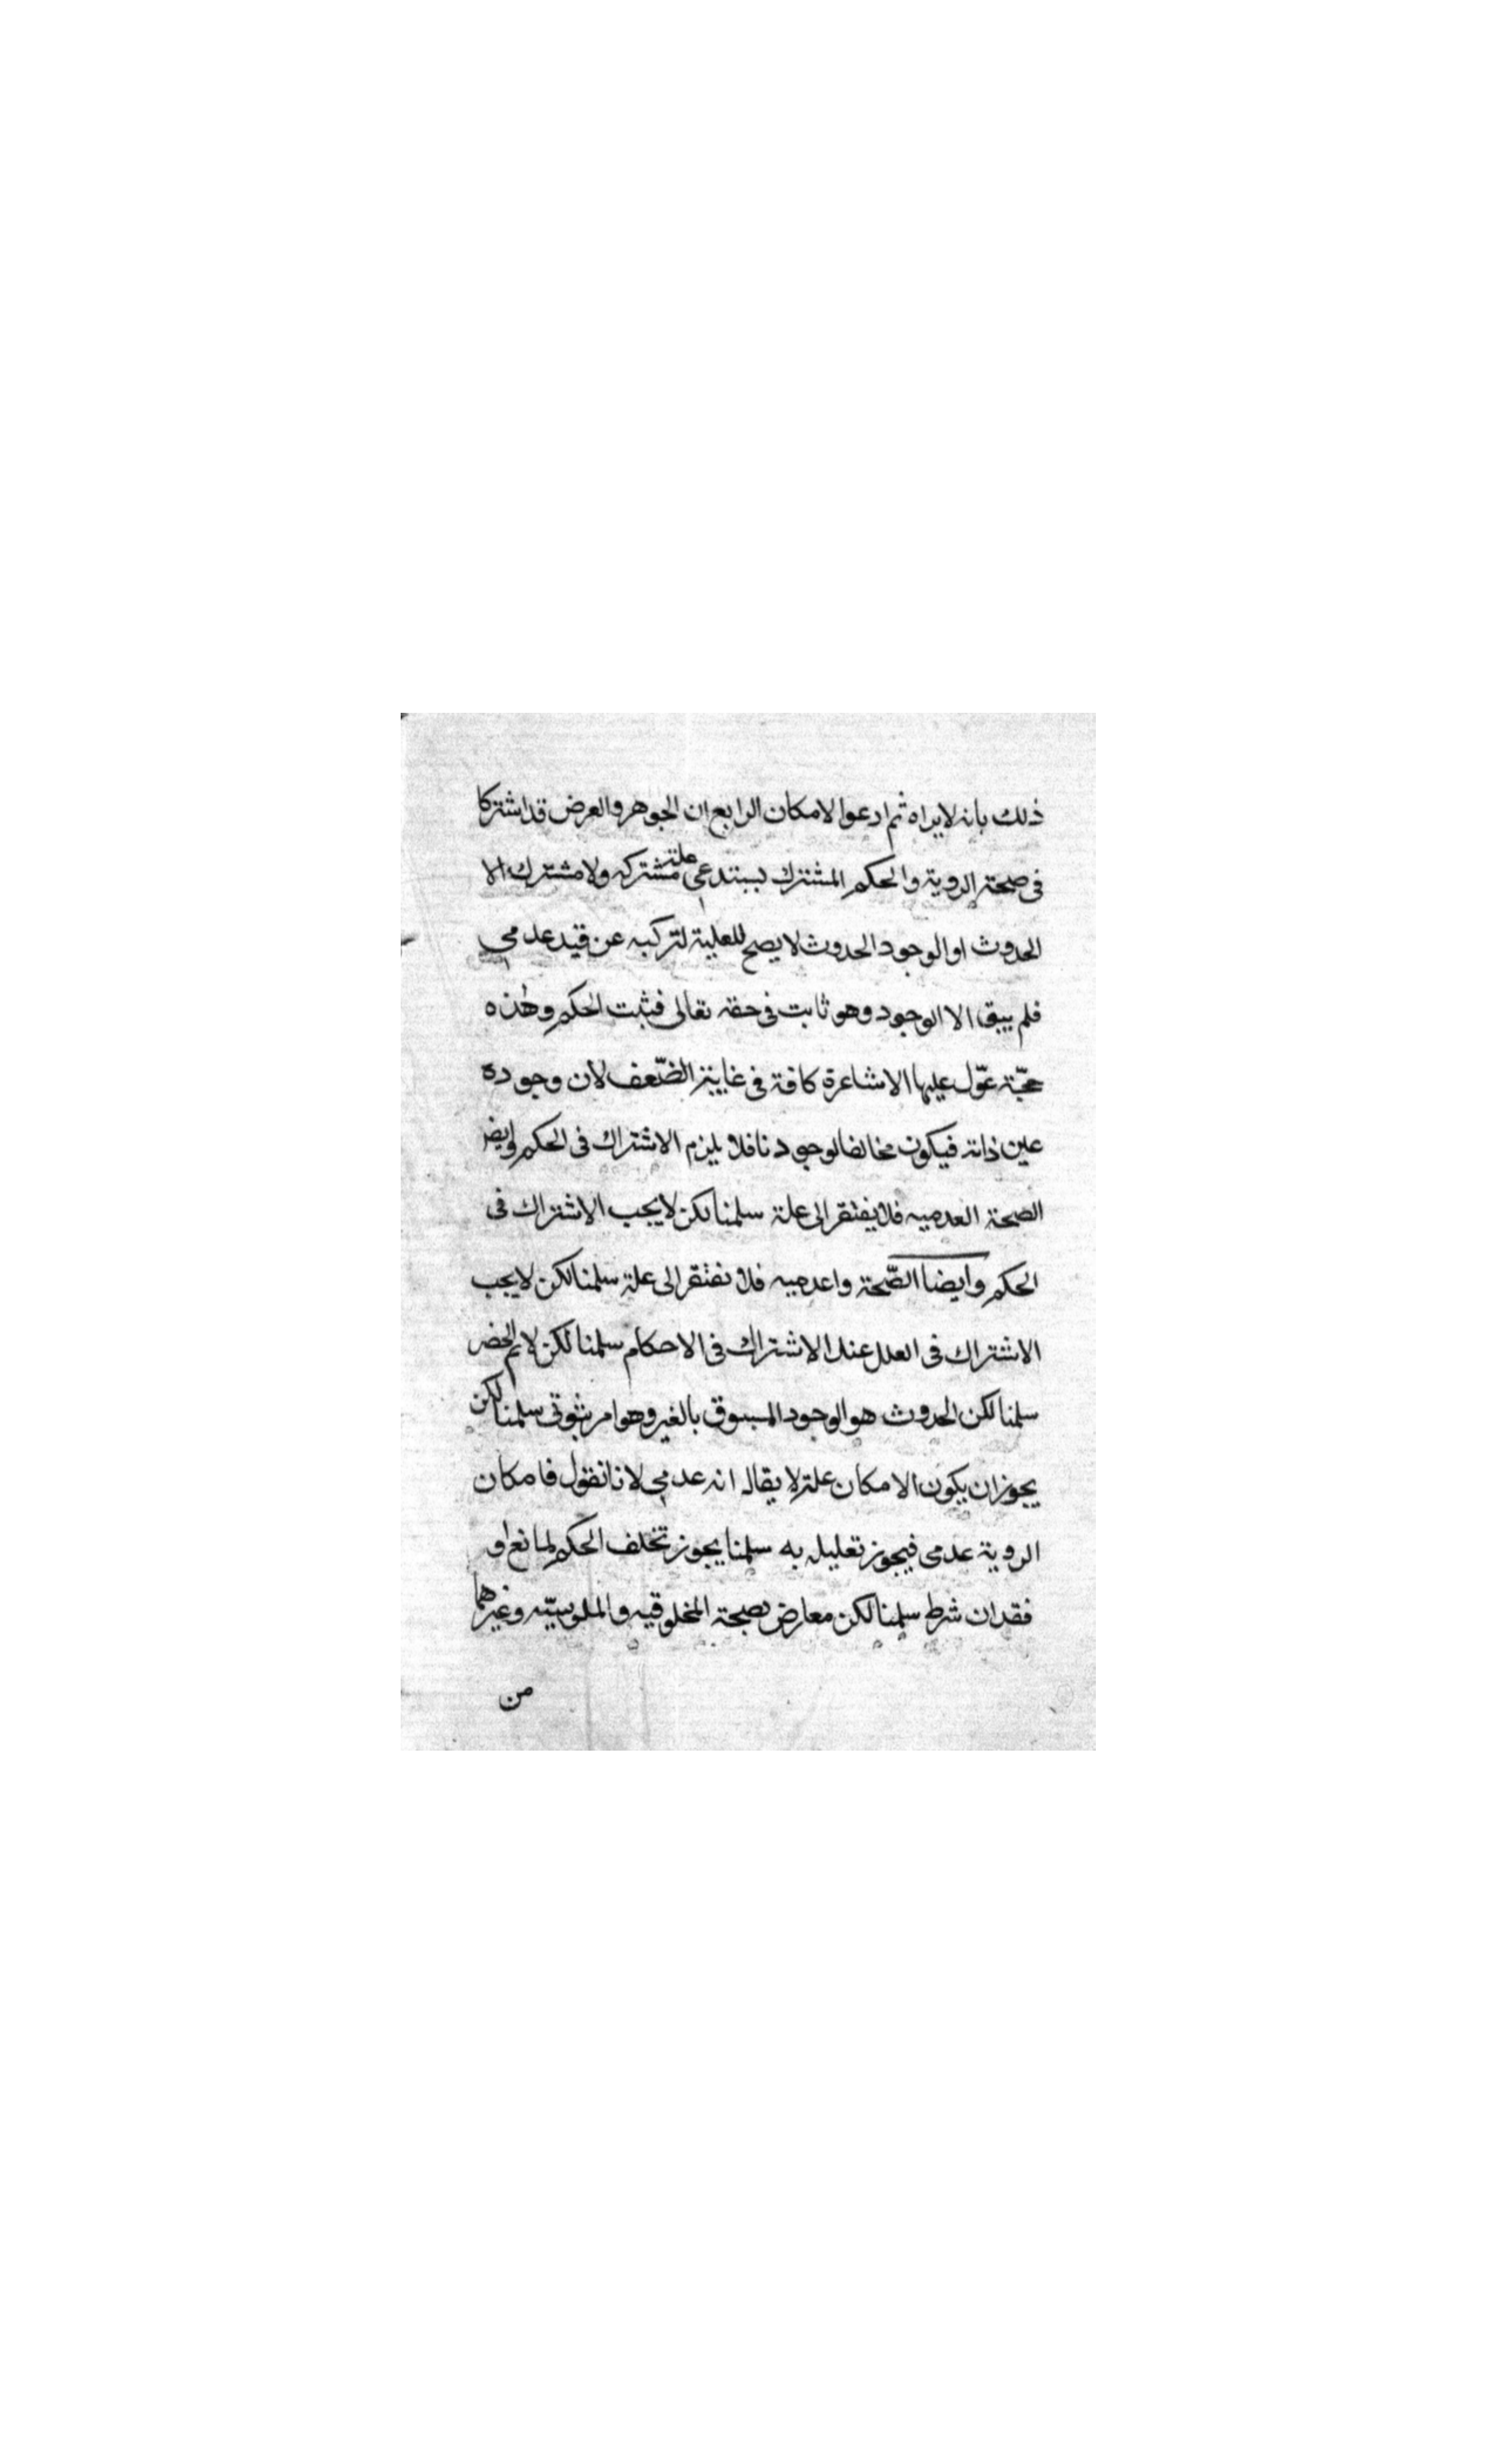 ذلك بانه لا يراه ثم ادعوا الامكان الرابع ان الجوهر والعرض قد اشتركا
فى صحة الروية والحكم المشترك يستدعى علة مشتركه ولا مشترك الا
الحدوث او الوجود الحدوث لا يصح للعلية لتركبه عن قيد عدمى
فلم يبق الا الوجود وهو ثابت فى حقه تعالى فثبت الحكم وهذه
حجّة عوّل عليها الاشاعرة كافة فى غاية الضّعف لان وجوده
عين ذاته فيكون مخالفا لوجودنا فلا يلزم الاشتراك فى الحكم وايضا
الصحة العدميه فلا يفتقر الى علة سلمنا لكن لا يجب الاشتراك فى
الحكم وايضا الصّحة واعدميه فلا نفتقر الى علة سلمنا لكن لا يجب
الاشتراك فى العلل عند الاشتراك فى الاحكام سلمنا لكن لا نم الحضر
سلمنا لكن الحدوث هو الوجود المسبوق بالغير وهو امر ثبوتى سلمنا لكن
يجوز ان يكون الامكان علة لا يقال انه عدمى لانا نقول فامكان
الروية عدمى فيجوز تعليله به سلمنا يجوز تخلف الحكم لمانع او
فقدان شرط سلمنا لكن معارض بصحة المخلوقيه والملموسيّه وغيرهما
من